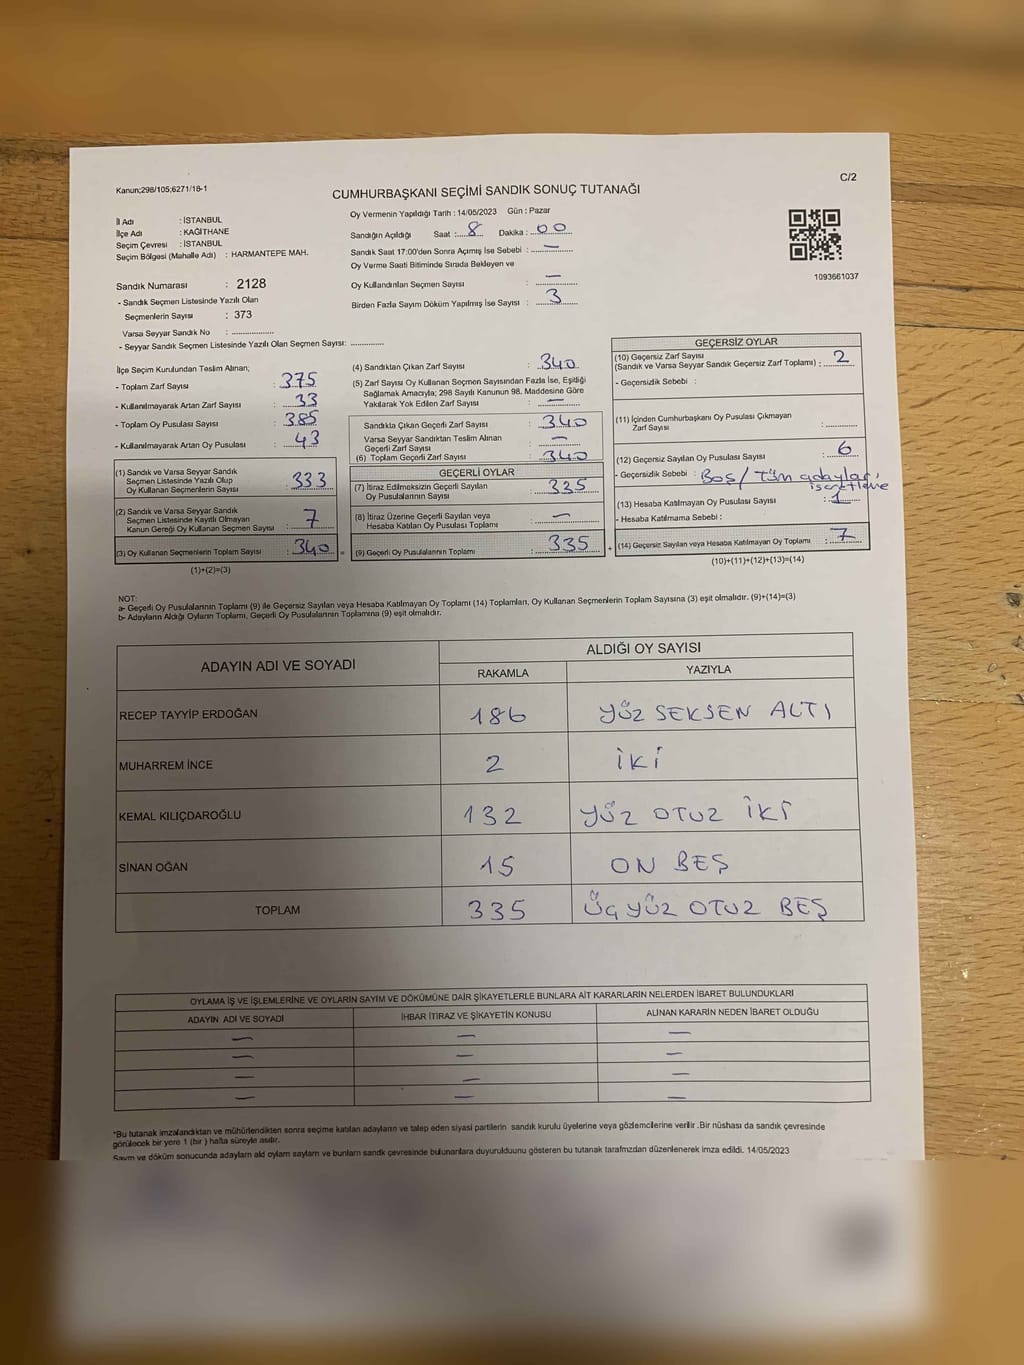 Kanun;298/105;6271/18-1
C/2
CUMHURBAŞKANI SEÇİMİ SANDIK SONUÇ TUTANAĞI
İl Adı : İSTANBUL
İlçe Adı : KAĞITHANE
Seçim Çevresi : İSTANBUL
Seçim Bölgesi (Mahalle Adı) : HARMANTEPE MAH.
Sandık Numarası : 2128
- Sandık Seçmen Listesinde Yazılı Olan
Seçmenlerin Sayısı : 373
Varsa Seyyar Sandık No : ..................
- Seyyar Sandık Seçmen Listesinde Yazılı Olan Seçmen Sayısı: ..............
Oy Vermenin Yapıldığı Tarih : 14/05/2023 Gün : Pazar
Sandığın Açıldığı Saat : 8 Dakika : 00
Sandık Saat 17:00'den Sonra Açılmış İse Sebebi : —
Oy Verme Saati Bitiminde Sırada Bekleyen ve
Oy Kullandırılan Seçmen Sayısı : —
Birden Fazla Sayım Döküm Yapılmış İse Sayısı : 3
1093661037
İlçe Seçim Kurulundan Teslim Alınan;
- Toplam Zarf Sayısı : 375
- Kullanılmayarak Artan Zarf Sayısı : 33
- Toplam Oy Pusulası Sayısı : 385
- Kullanılmayarak Artan Oy Pusulası : 43
(1) Sandık ve Varsa Seyyar Sandık
Seçmen Listesinde Yazılı Olup
Oy Kullanan Seçmenlerin Sayısı : 333
(2) Sandık ve Varsa Seyyar Sandık
Seçmen Listesinde Kayıtlı Olmayan
Kanun Gereği Oy Kullanan Seçmen Sayısı : 7
(3) Oy Kullanan Seçmenlerin Toplam Sayısı : 340 =
(1)+(2)=(3)
(4) Sandıktan Çıkan Zarf Sayısı : 340
(5) Zarf Sayısı Oy Kullanan Seçmen Sayısından Fazla İse, Eşitliği
Sağlamak Amacıyla; 298 Sayılı Kanunun 98. Maddesine Göre
Yakılarak Yok Edilen Zarf Sayısı : —
Sandıkla Çıkan Geçerli Zarf Sayısı : 340
Varsa Seyyar Sandıktan Teslim Alınan
Geçerli Zarf Sayısı : —
(6) Toplam Geçerli Zarf Sayısı : 340
GEÇERLİ OYLAR
(7) İtiraz Edilmeksizin Geçerli Sayılan
Oy Pusulalarının Sayısı : 335
(8) İtiraz Üzerine Geçerli Sayılan veya
Hesaba Katılan Oy Pusulası Toplamı : —
(9) Geçerli Oy Pusulalarının Toplamı : 335 +
GEÇERSİZ OYLAR
(10) Geçersiz Zarf Sayısı
(Sandık ve Varsa Seyyar Sandık Geçersiz Zarf Toplamı) : 2
- Geçersizlik Sebebi :
(11) İçinden Cumhurbaşkanı Oy Pusulası Çıkmayan
Zarf Sayısı :
(12) Geçersiz Sayılan Oy Pusulası Sayısı : 6
- Geçersizlik Sebebi : Boş / Tüm adaylar
(13) Hesaba Katılmayan Oy Pusulası Sayısı : 1
- Hesaba Katılmama Sebebi :
(14) Geçersiz Sayılan veya Hesaba Katılmayan Oy Toplamı : 7
(10)+(11)+(12)+(13)=(14)
NOT:
a- Geçerli Oy Pusulalarının Toplamı (9) ile Geçersiz Sayılan veya Hesaba Katılmayan Oy Toplamı (14) Toplamları, Oy Kullanan Seçmenlerin Toplam Sayısına (3) eşit olmalıdır. (9)+(14)=(3)
b- Adayların Aldığı Oyların Toplamı, Geçerli Oy Pusulalarının Toplamına (9) eşit olmalıdır.
ADAYIN ADI VE SOYADI
ALDIĞI OY SAYISI
RAKAMLA YAZIYLA
RECEP TAYYİP ERDOĞAN 186 YÜZ SEKSEN ALTI
MUHARREM İNCE 2 İKİ
KEMAL KILIÇDAROĞLU 132 YÜZ OTUZ İKİ
SİNAN OĞAN 15 ON BEŞ
TOPLAM 335 ÜÇ YÜZ OTUZ BEŞ
OYLAMA İŞ VE İŞLEMLERİNE VE OYLARIN SAYIM VE DÖKÜMÜNE DAİR ŞİKAYETLERLE BUNLARA AİT KARARLARIN NELERDEN İBARET BULUNDUKLARI
ADAYIN ADI VE SOYADI İHBAR İTİRAZ VE ŞİKAYETİN KONUSU ALINAN KARARIN NEDEN İBARET OLDUĞU
— — —
— — —
— — —
— — —
*Bu tutanak imzalandıktan ve mühürlendikten sonra seçime katılan adayların ve talep eden siyasi partilerin sandık kurulu üyelerine veya gözlemcilerine verilir .Bir nüshası da sandık çevresinde
görülecek bir yere 1 (bir ) hafta süreyle asılır.
Sayım ve döküm sonucunda adayların ald oyların sayların ve bunların sandk çevresinde bulunanlara duyurulduunu gösteren bu tutanak tarafmzdan düzenlenerek imza edildi. 14/05/2023